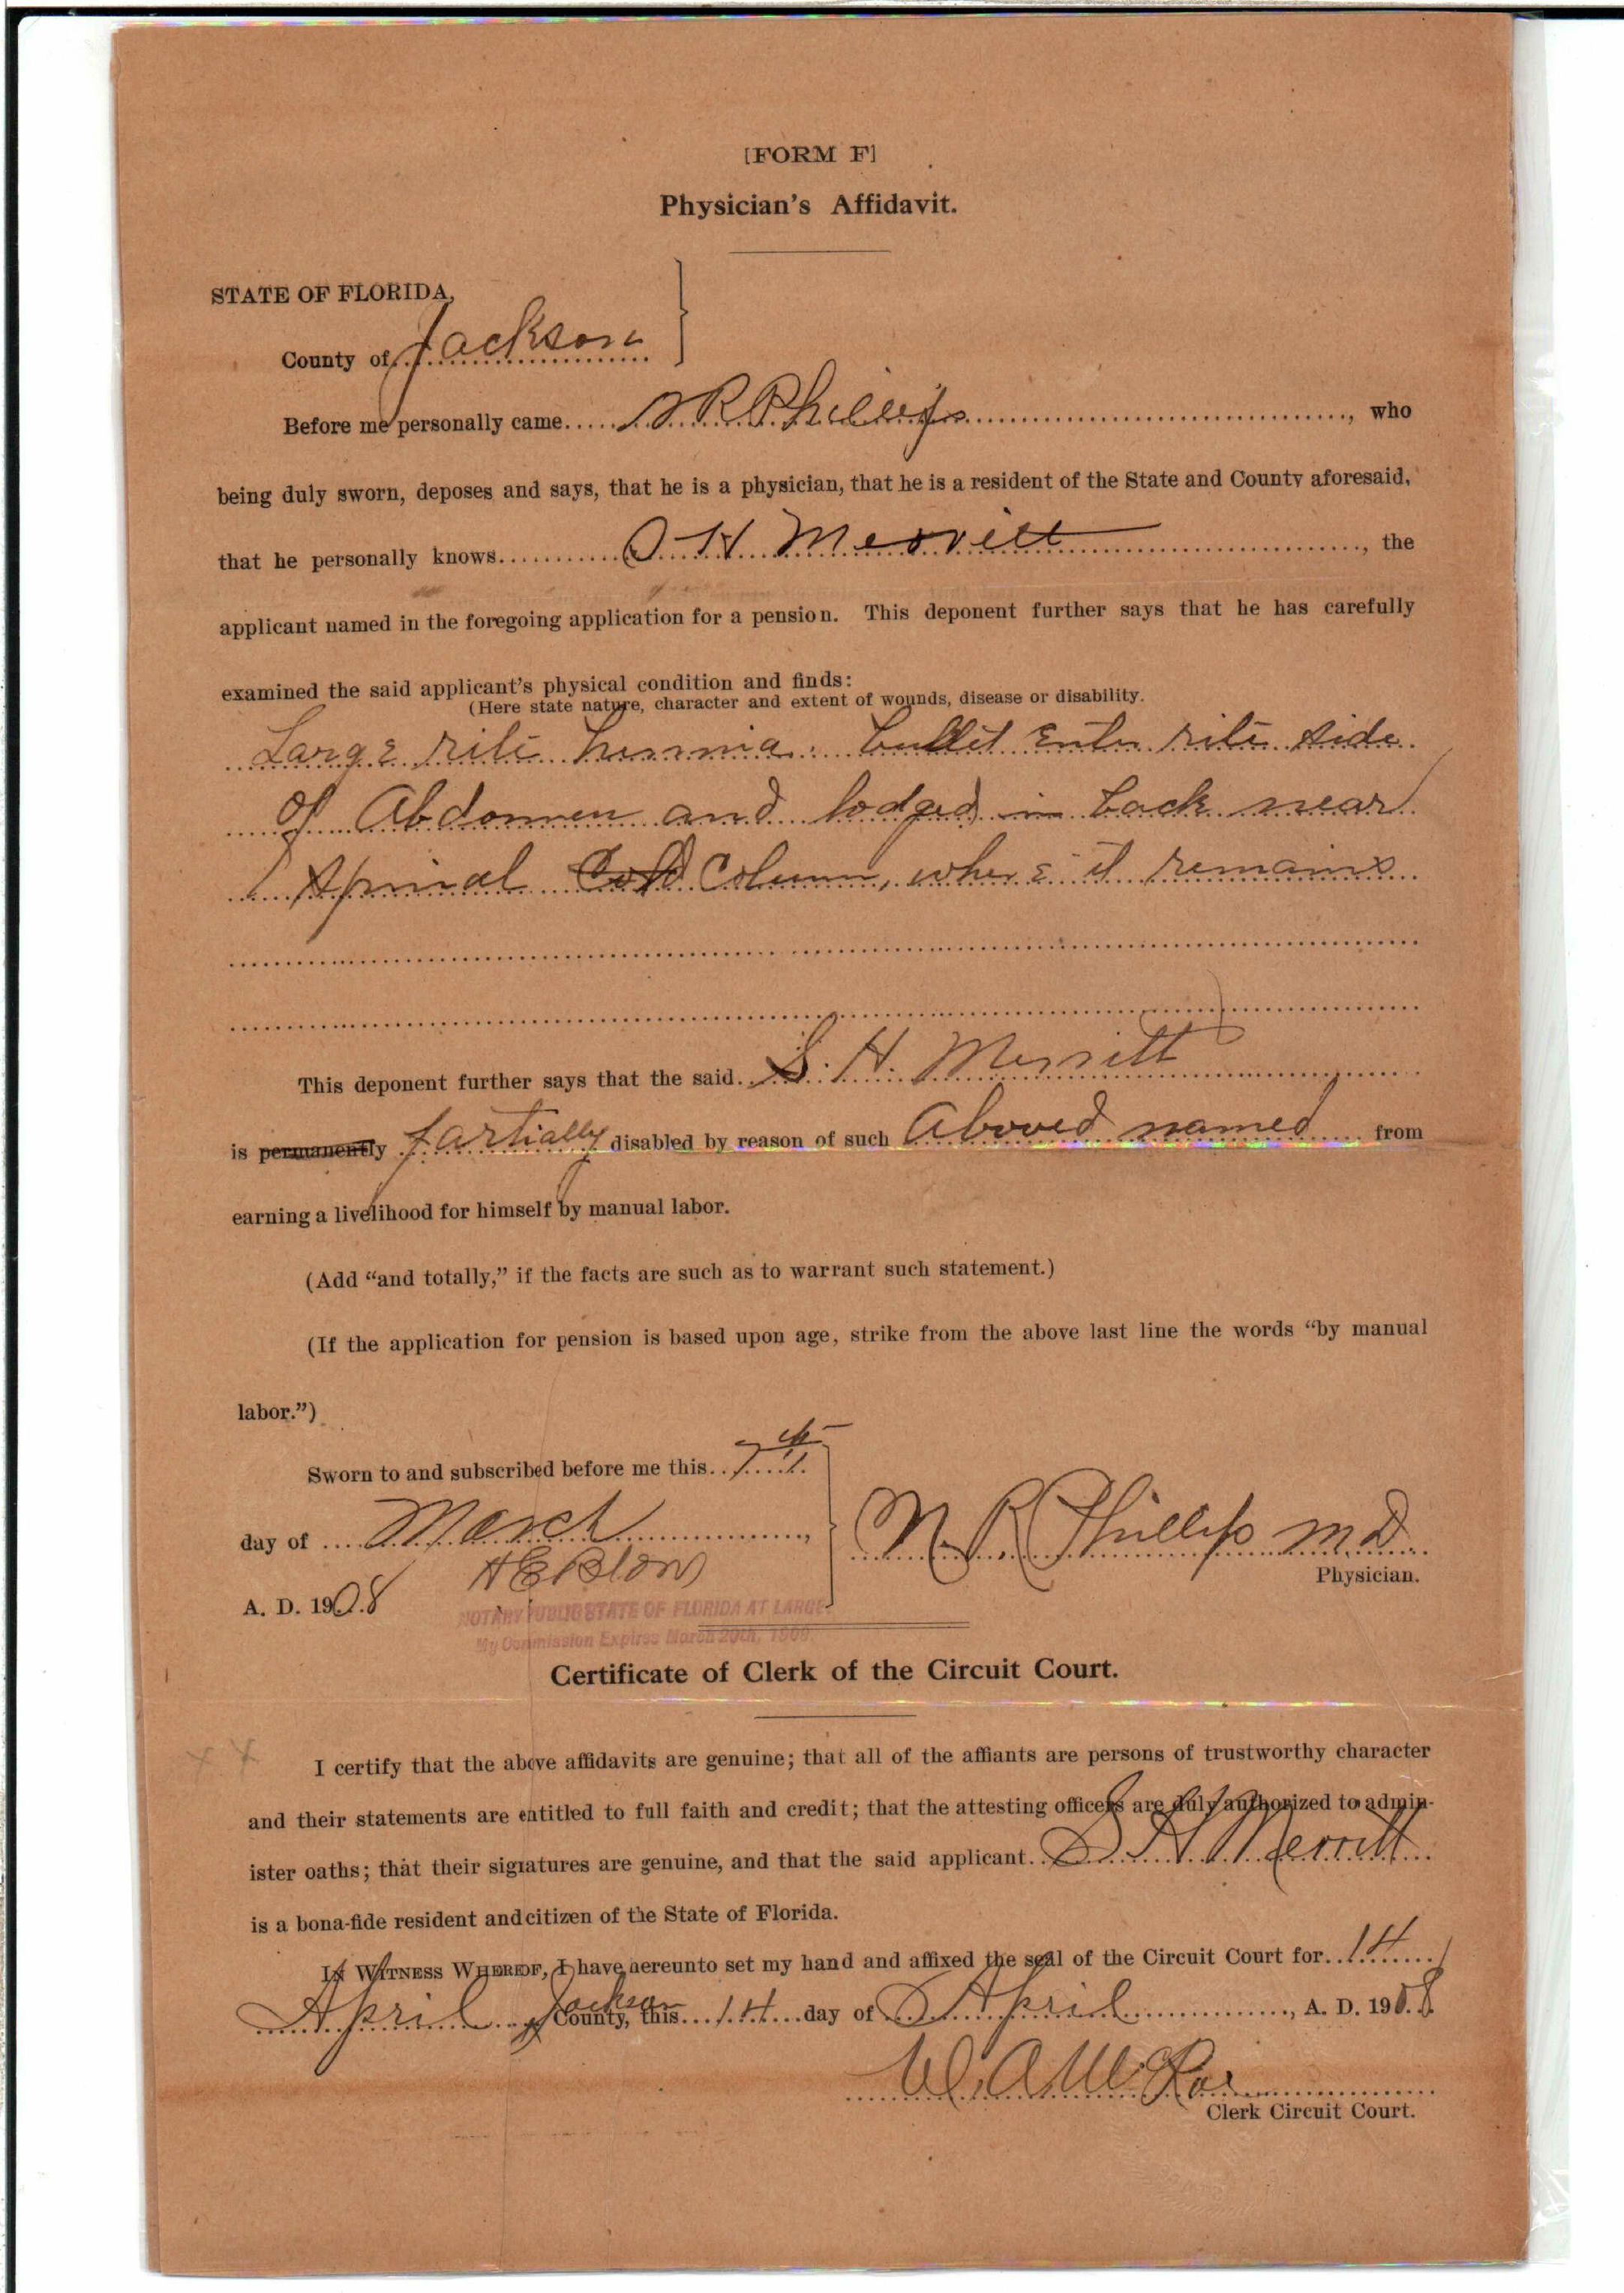 [FORM F]
Physician's Affidavit.
STATE OF FLORIDA,
County of Jackson
Before me personally came N R Phillips, who
being duly sworn, deposes and says, that he is a physician, that he is a resident of the State and County aforesaid,
that he personally knows H Merritt, the
applicant named in the foregoing application for a pension. This deponent further says that he has carefully
examined the said applicant's physical condition and finds:
(Here state nature, character and extent of wounds, disease or disability.
Large rite hernnia. bullit enter rite side
of Abdomen and lodged in back near
Spinal Column, where it remains
This deponent further says that the said S. H. Merritt
is permanently partially disabled by reason of such Aboved named from
earning a livelihood for himself by manual labor.
(Add "and totally," if the facts are such as to warrant such statement.)
(If the application for pension is based upon age, strike from the above last line the words "by manual
labor.")
Sworn to and subscribed before me this 7th
day of March,
A. D. 1908
H E Blow
NOTARY PUBLIC STATE OF FLORIDA AT LARGE
My Commission Expires March 20th, 1909.
N. R. Phillips M.D.
Physician.
Certificate of Clerk of the Circuit Court.
I certify that the above affidavits are genuine; that all of the affiants are persons of trustworthy character
and their statements are entitled to full faith and credit; that the attesting officers are duly authorized to admin-
ister oaths; that their signatures are genuine, and that the said applicant S H Merritt
is a bona-fide resident and citizen of the State of Florida.
IN WITNESS WHEREOF, I have hereunto set my hand and affixed the seal of the Circuit Court for 14
April Jackson County, this 14 day of April, A. D. 1908
W. A. McRae
Clerk Circuit Court.